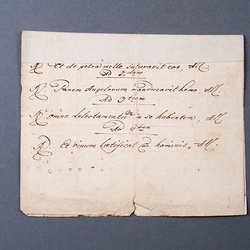 R Et de petra melle saturavit eos, All:
Ad
R Panem Angelorum manducavit homo All:
Ad
R omne delectamentum in se habentem, All:
Ad
R Et vinum laetificat cor hominis. All: